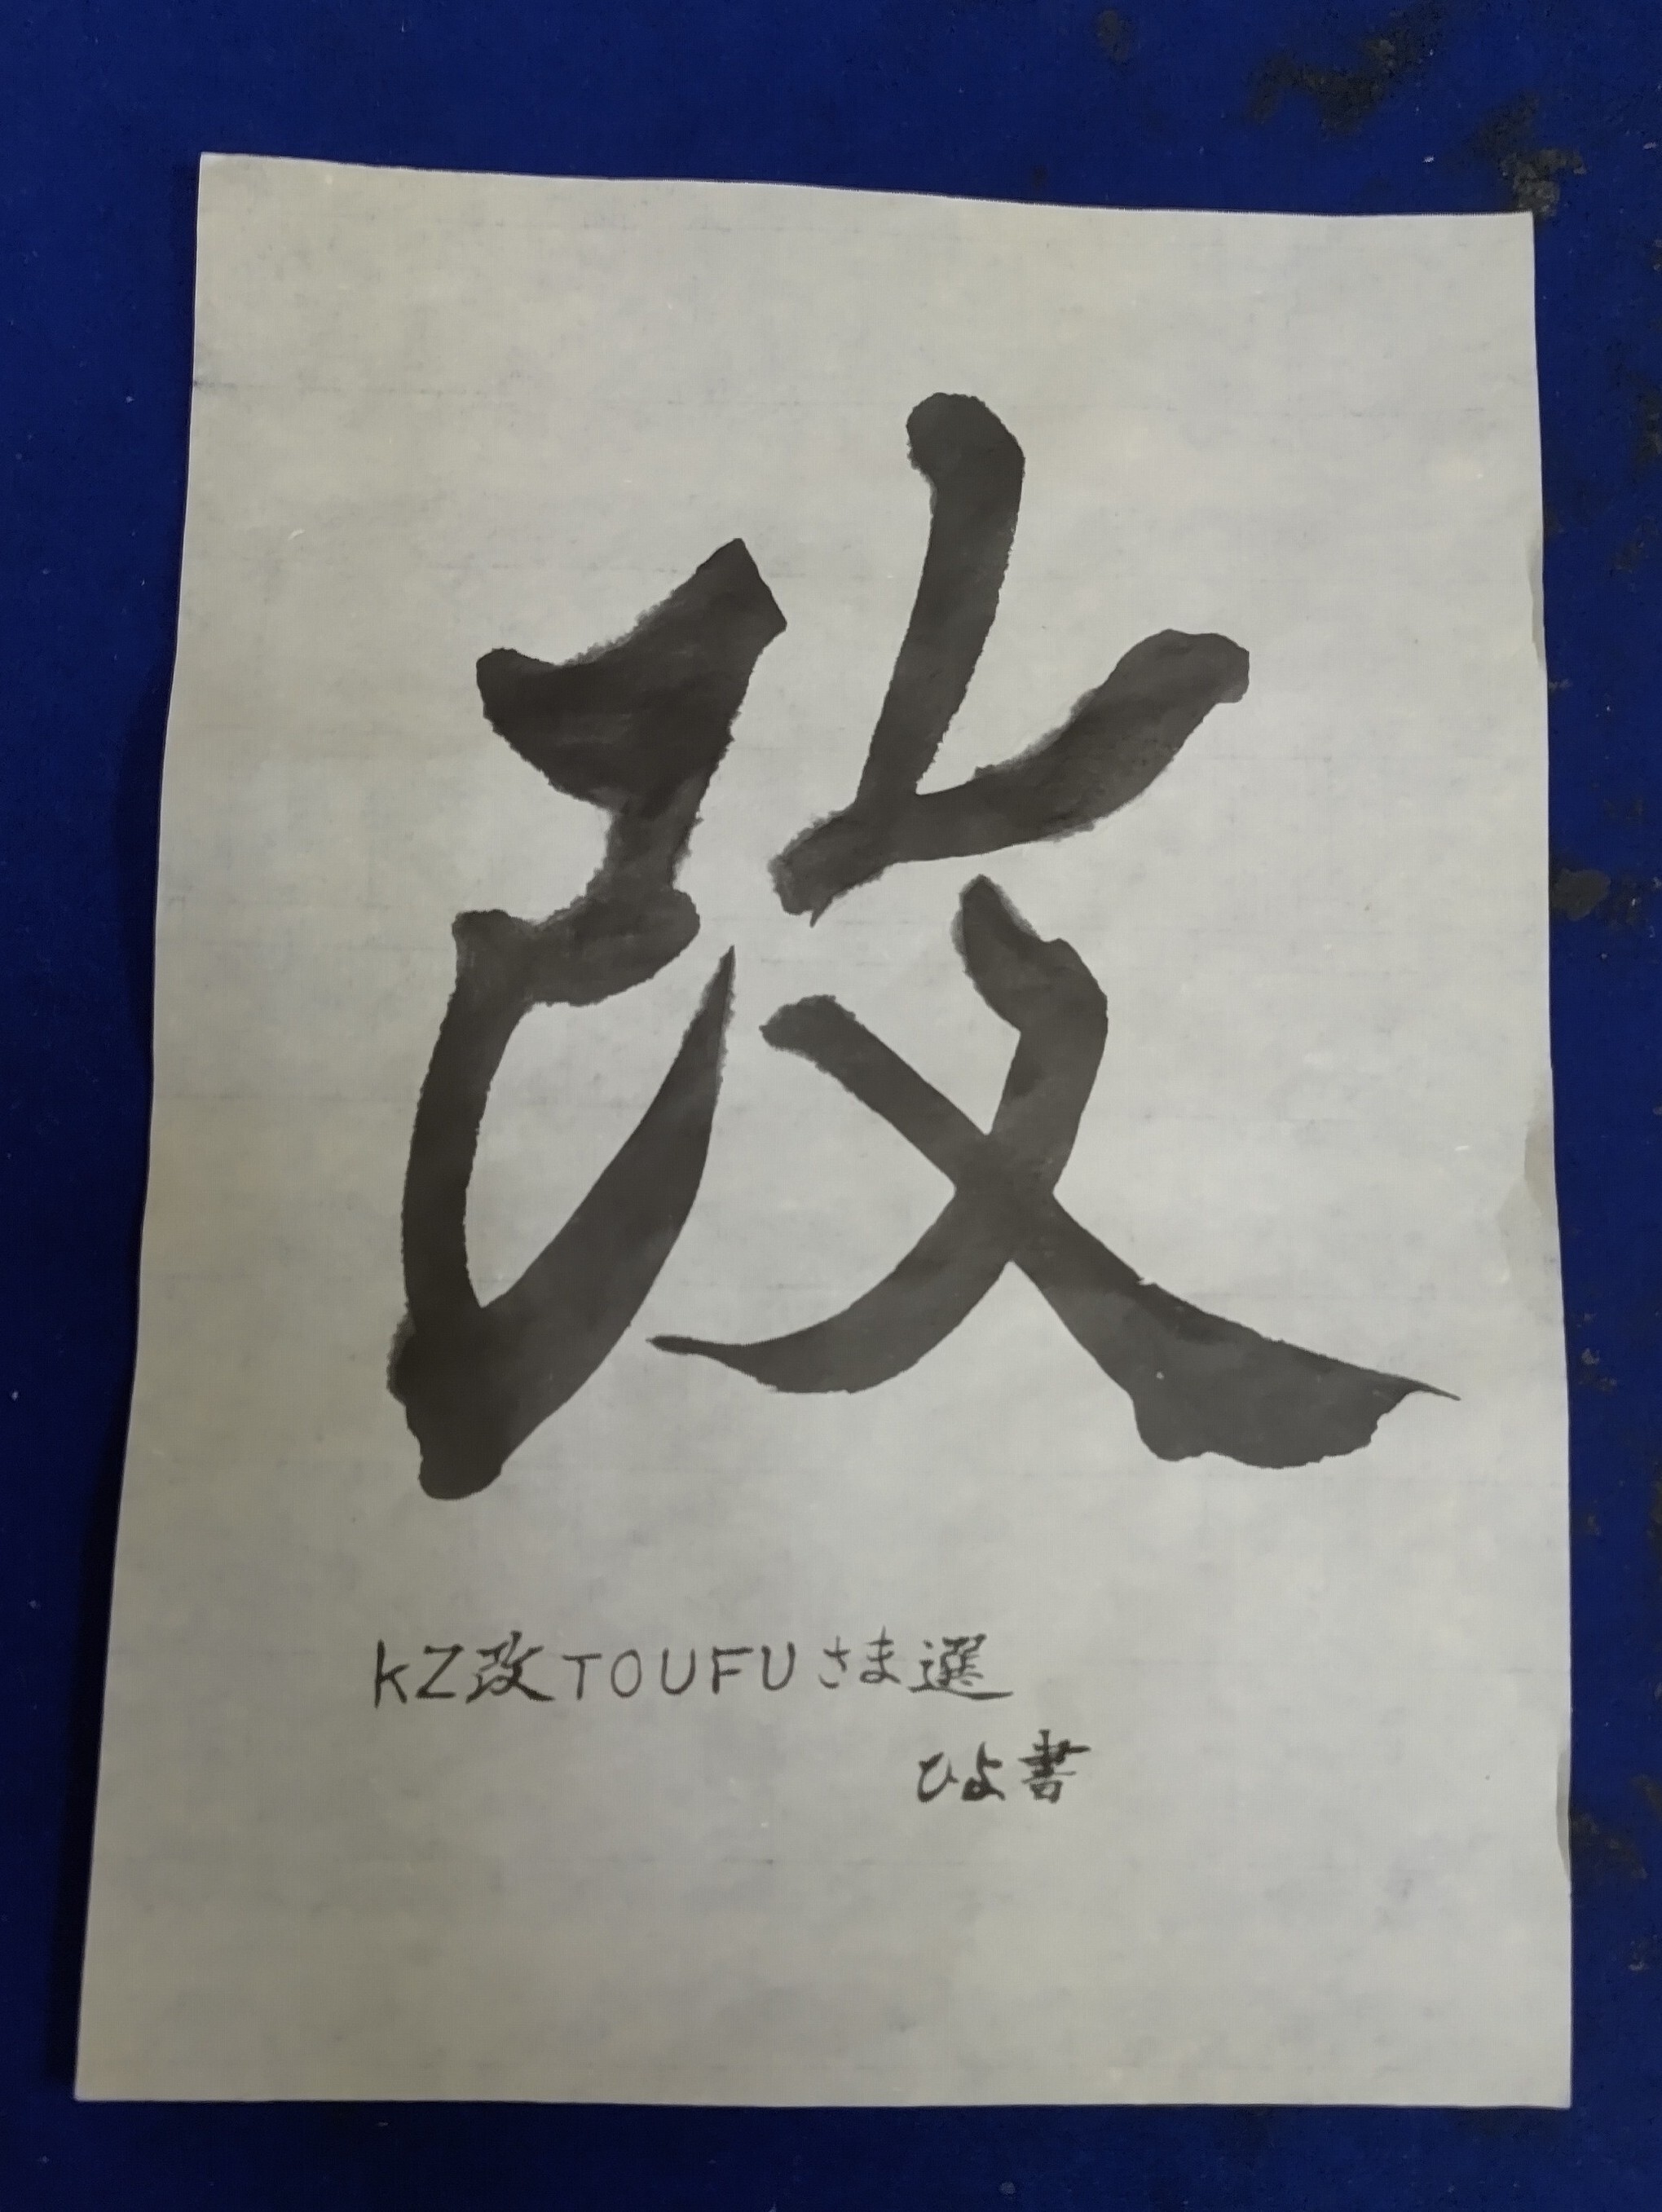 改
kZ改TOUFUさま選
ひよ書